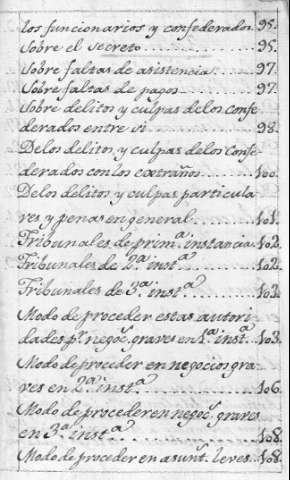 los funcionarios y confederados 95.
Sobre el secreto 95.
Sobre faltas de asistencia 97.
Sobre faltas de pagos 97.
Sobre delitos y culpas delos Confe
derados entre si 98.
Delos delitos, y culpas delos Confe
derados con los extraños 100.
Delos delitos, y culpas particula
res y penas en general 101.
Tribunales de prim.ª instancia 102.
Tribunales de 2.ª inst.ª 102.
Tribunales de 3.ª inst.ª 103.
Modo de proceder estas autori
dades p.r negoc.s graves en 1.ª inst.ª 103.
Modo de proceder en negocios gra
ves en 2.ª inst.ª 106.
Modo de proceder en negoc.s graves
en 3.ª inst.ª 108.
Modo de proceder en asunt.s leves. 108.